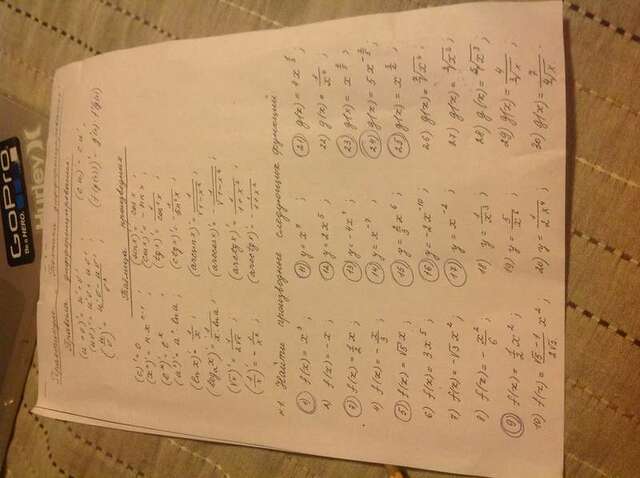 GoPro
Be a HERO.
Hurley
Практикум "Техника дифференцирования"
Правила дифференцирования
(u+v)' = u'+v' ; (cu)' = cu'
(uv)' = u'v + uv' ; (f(g(x)))' = g'(x)·f'(g(x))
(u/v)' = (u'v - uv')/v² ;
Таблица производных
(c)' = 0 (sinx)' = cosx ;
(xⁿ)' = n xⁿ⁻¹ (cosx)' = -sinx ;
(eˣ)' = eˣ (tgx)' = 1/cos²x ;
(aˣ)' = aˣ·lna ; (ctgx)' = -1/sin²x ;
(lnx)' = 1/x ; (arcsinx)' = 1/√(1-x²) ;
(logₐx)' = 1/(x·lna) ; (arccosx)' = -1/√(1-x²) ;
(√x)' = 1/(2√x) ; (arctgx)' = 1/(1+x²) ;
(1/x)' = -1/x² ; (arcctgx)' = -1/(1+x²) ;
№1. Найти производные следующих функций
1) f(x) = x³ ; 11) y = x⁴ ; 21) g(x) = 4x
2) f(x) = -x ; 12) y = 2x⁵ ; 22) g(x) =
3) f(x) = 1/2 x ; 13) y = -4x ; 23) g(x) = x
4) f(x) = -x/3 ; 14) y = x⁻⁷ ; 24) g(x) = 5x
5) f(x) = √5 x ; 15) y = x⁶ ; 25) g(x) = x
6) f(x) = 3x⁵ ; 16) y = -2x⁻¹⁰ ; 26) g(x) =
7) f(x) = -√3 x² ; 17) y = x⁻² ; 27) g(x) =
8) f(x) = -x²/6 ; 18) y = 1/x³ ; 28) g(x) =
9) f(x) = 1/2 x² ; 19) y = 5/x⁶ ; 29) g(x) =
10) f(x) = (√5-1)/(2√3) x² ; 20) y = 1/(2x⁴) ; 30) g(x) =